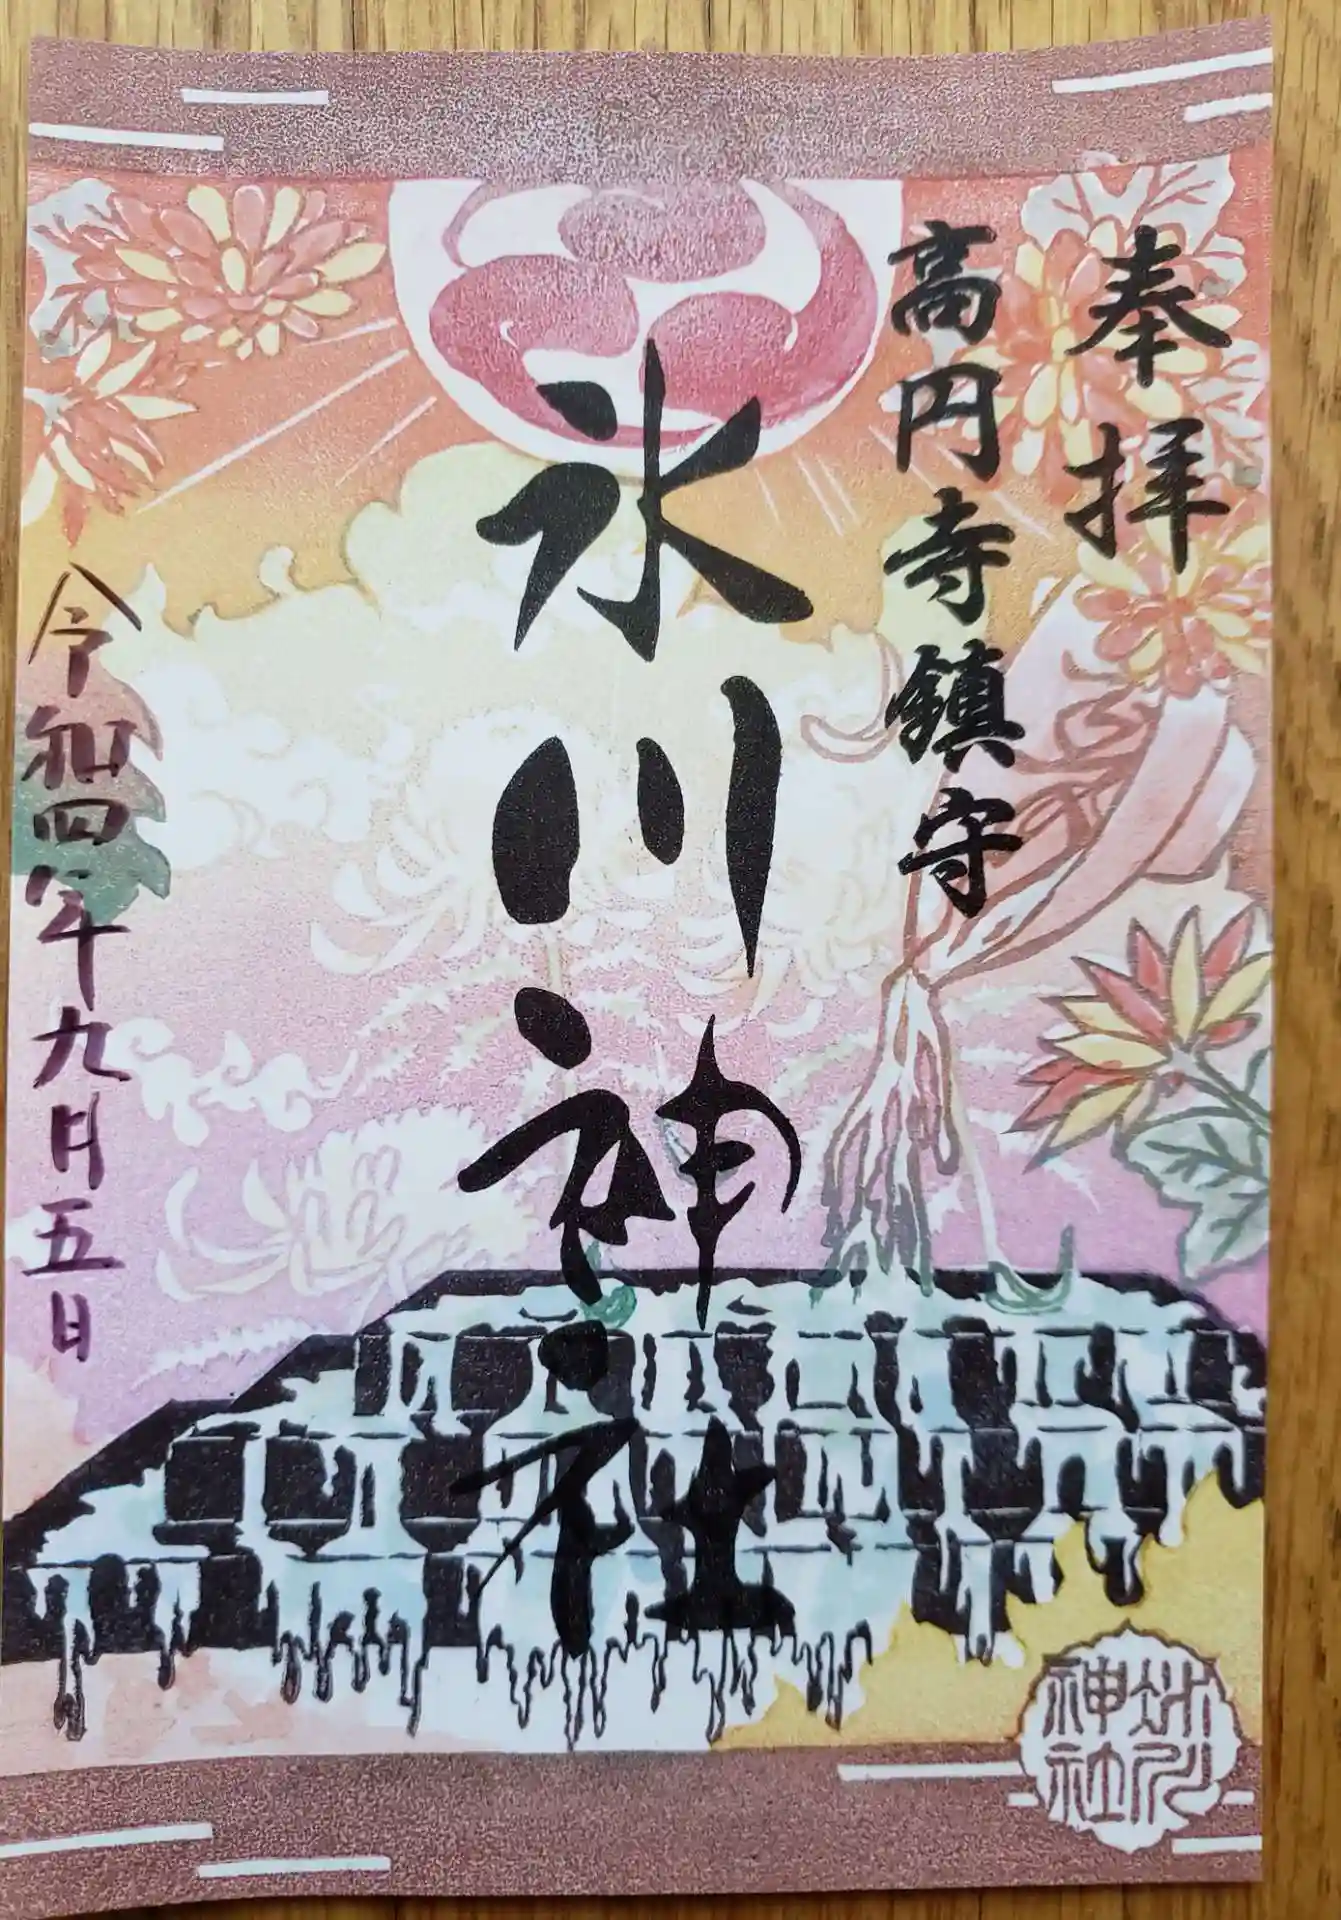 奉拝
高円寺鎮守
氷川神社
令和四年九月五日
氷川
神社